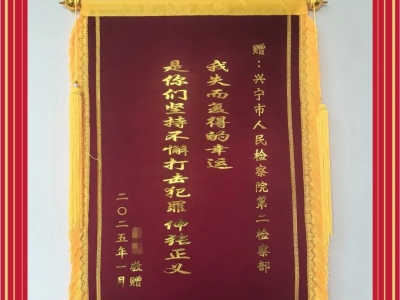 赠：兴宁市人民检察院第二检察部
我失而复得的幸运
是你们坚持不懈打击犯罪伸张正义
敬赠
二〇二五年一月